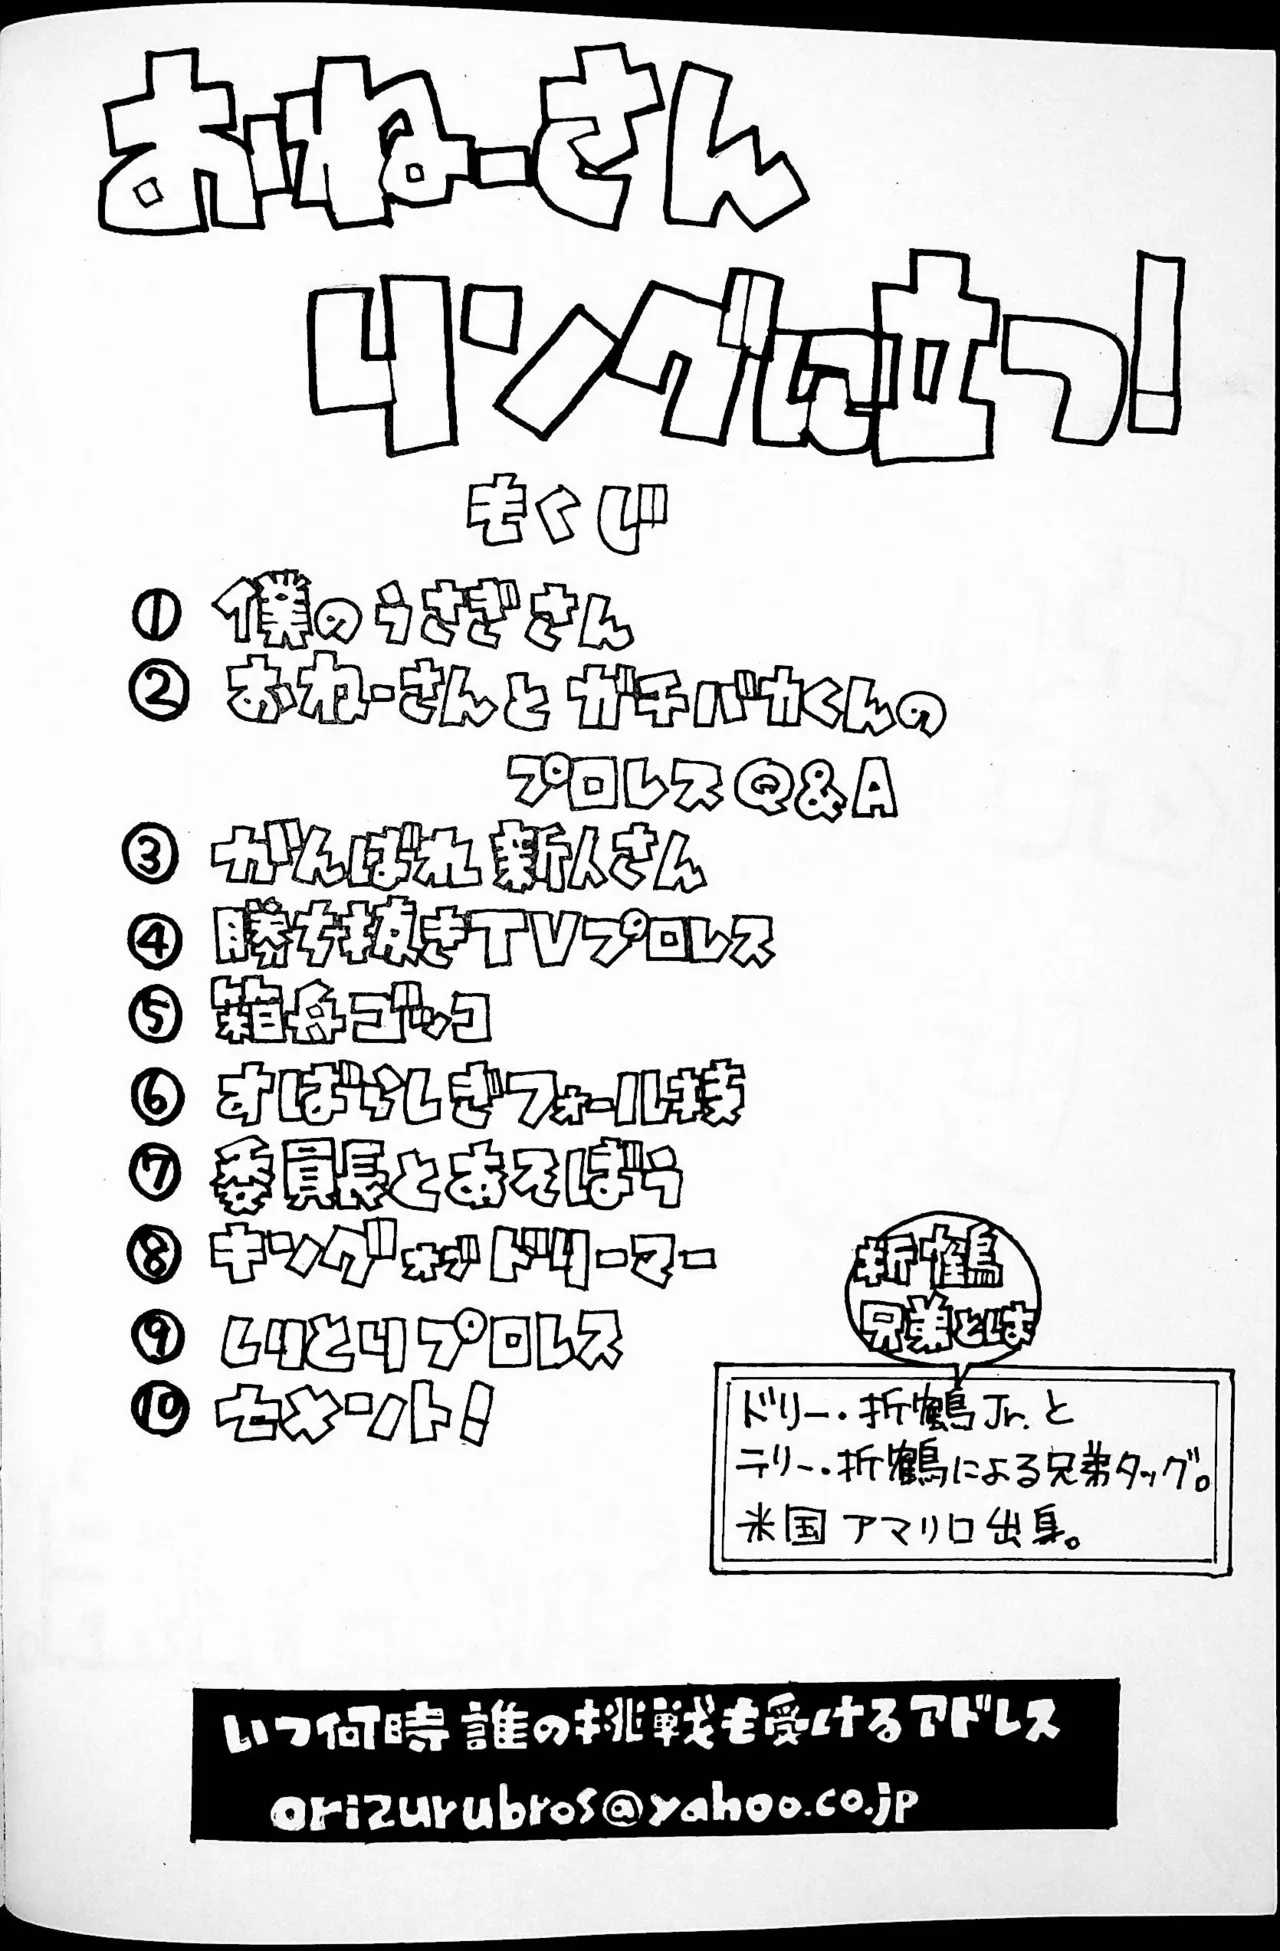 おねーさん
リングに立つ!
もくじ
① 僕のうさぎさん
② おねーさんとガチバカくんの
プロレスQ&A
③ がんばれ新人さん
④ 勝ち抜きTVプロレス
⑤ 箱舟ゴッコ
⑥ すばらしきフォール技
⑦ 委員長とあそぼう
⑧ キングオブドリーマー
⑨ しりとりプロレス
⑩ セメント!
折鶴
兄弟とは
ドリー・折鶴Jr.と
テリー・折鶴による兄弟タッグ。
米国アマリロ出身。
いつ何時誰の挑戦も受けるアドレス
orizurubros@yahoo.co.jp